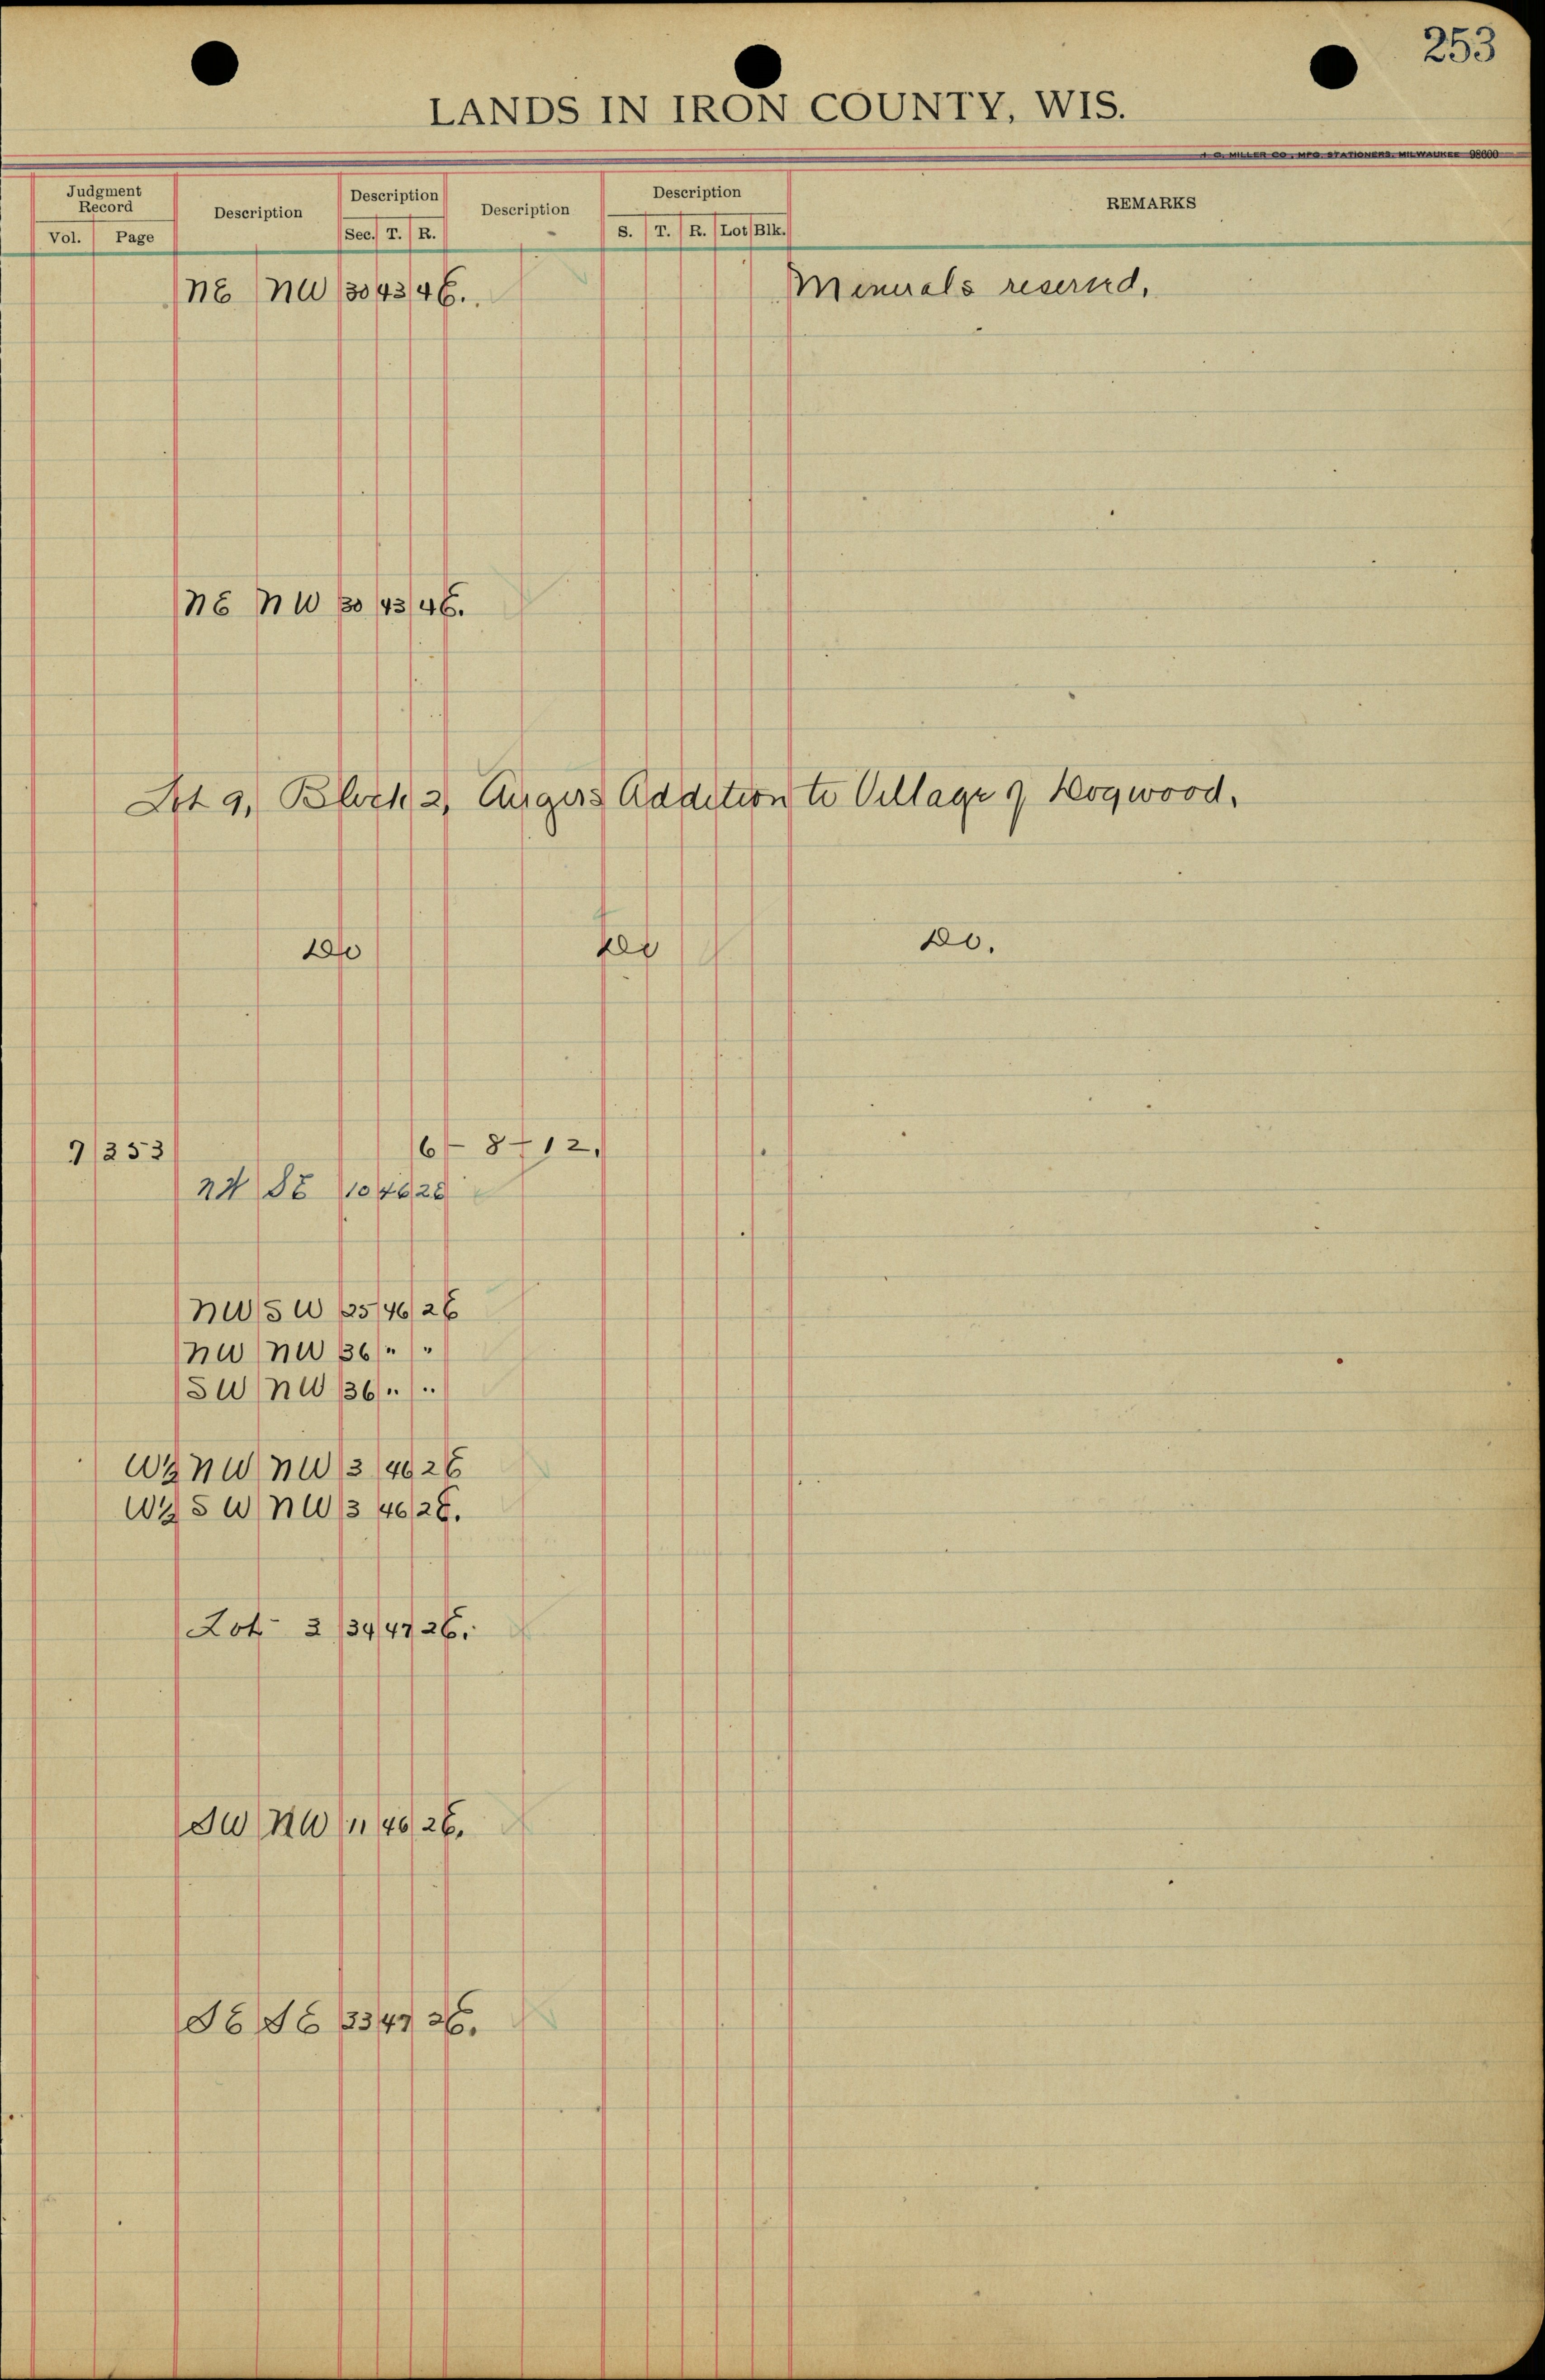 253
LANDS IN IRON COUNTY, WIS.
H. G. MILLER CO., MFG. STATIONERS, MILWAUKEE 98600
Judgment Record Vol. Page Description Description Sec. T. R. Description Description S. T. R. Lot Blk. REMARKS
NE NW 30 43 4E. Minerals reserved.
NE NW 30 43 4E.
Lot 9, Block 2, Angers Addition to Village of Hogwood.
Do Do Do.
7 253 6 - 8 - 12.
SE 10 46 2E
NW SW 25 46 2E
NW NW 36 " "
SW NW 36 " "
W½ NW NW 3 46 2E
W½ SW NW 3 46 2E.
Lot - 2 34 47 2E.
SW NW 11 46 2E.
SE SE 33 47 2E.